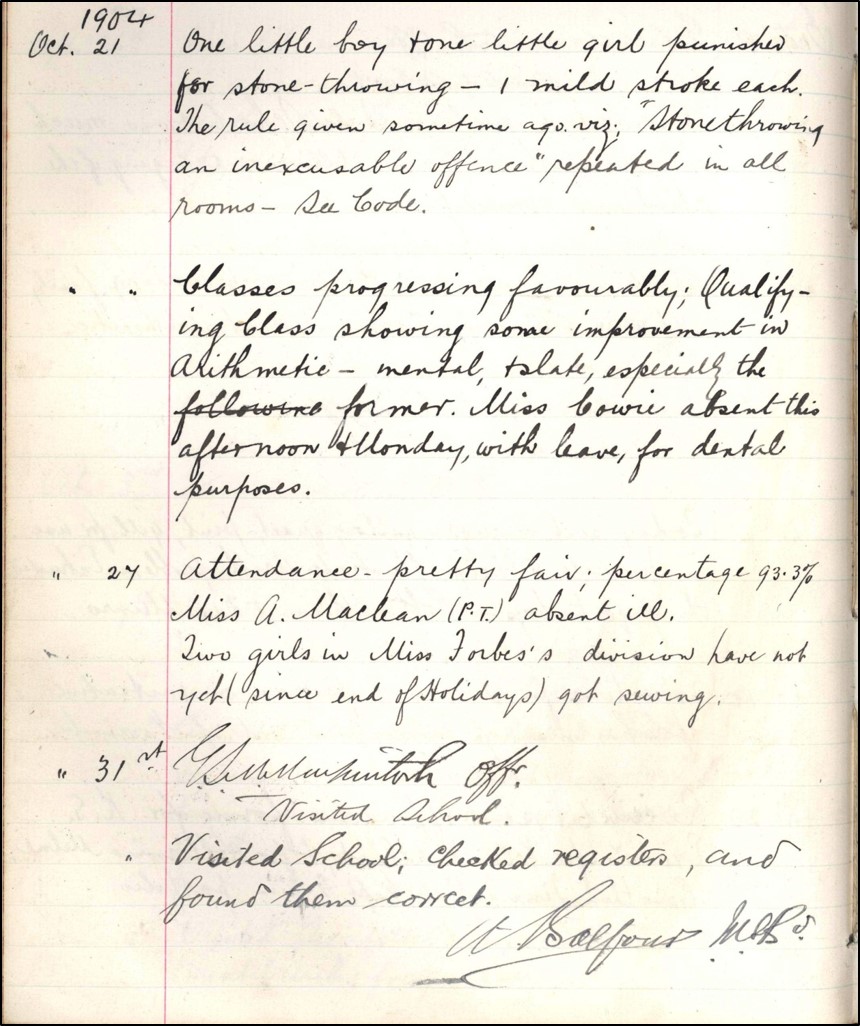 1904
Oct. 21 One little boy & one little girl punished
for stone-throwing - 1 mild stroke each.
The rule given sometime ago. viz; "Stonethrowing
an inexcusable offence" repeated in all
rooms - See Code.
" " Classes progressing favourably; Qualify-
ing Class showing some improvement in
Arithmetic - mental, & slate, especially the
following former. Miss Cowie absent this
afternoon & Monday, with leave, for dental
purposes.
" 27 Attendance - pretty fair; percentage 93.3%
Miss A. Maclean (P.T.) absent ill.
Two girls in Miss Forbes's division have not
yet (since end of Holidays) got sewing.
" 31st Mackintosh Offr.
Visited School.
" Visited School; checked registers, and
found them correct.
Balfour